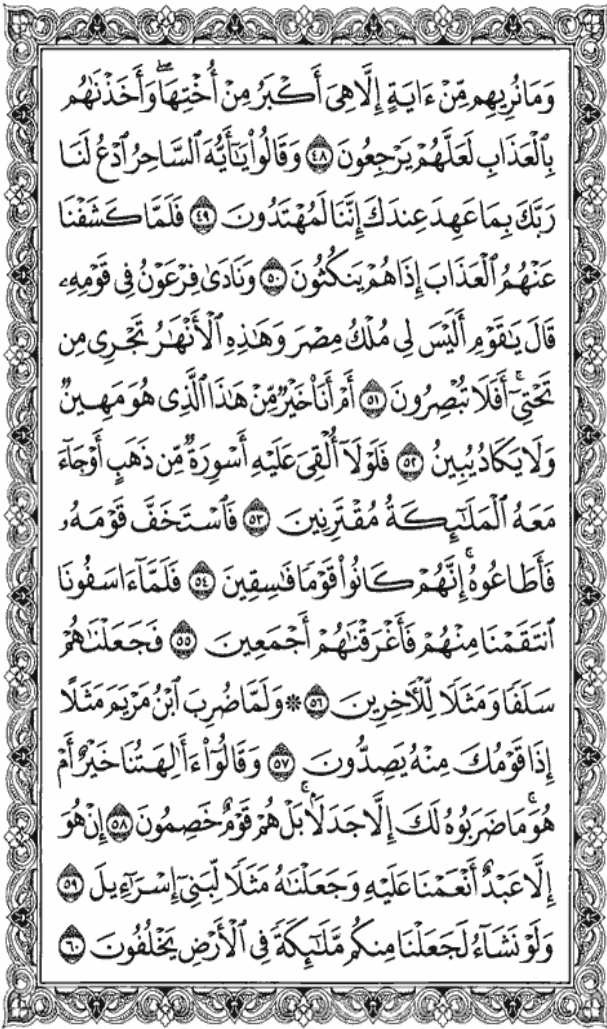 وَمَا نُرِيهِم مِّنْ ءَايَةٍ إِلَّا هِىَ أَكْبَرُ مِنْ أُخْتِهَا ۖ وَأَخَذْنَٰهُم
بِٱلْعَذَابِ لَعَلَّهُمْ يَرْجِعُونَ ٤٨ وَقَالُوا۟ يَٰٓأَيُّهَ ٱلسَّاحِرُ ٱدْعُ لَنَا
رَبَّكَ بِمَا عَهِدَ عِندَكَ إِنَّنَا لَمُهْتَدُونَ ٤٩ فَلَمَّا كَشَفْنَا
عَنْهُمُ ٱلْعَذَابَ إِذَا هُمْ يَنكُثُونَ ٥٠ وَنَادَىٰ فِرْعَوْنُ فِى قَوْمِهِۦ
قَالَ يَٰقَوْمِ أَلَيْسَ لِى مُلْكُ مِصْرَ وَهَٰذِهِ ٱلْأَنْهَٰرُ تَجْرِى مِن
تَحْتِىٓ ۚ أَفَلَا تُبْصِرُونَ ٥١ أَمْ أَنَا۠ خَيْرٌ مِّنْ هَٰذَا ٱلَّذِى هُوَ مَهِينٌ
وَلَا يَكَادُ يُبِينُ ٥٢ فَلَوْلَآ أُلْقِىَ عَلَيْهِ أَسْوِرَةٌ مِّن ذَهَبٍ أَوْ جَآءَ
مَعَهُ ٱلْمَلَٰٓئِكَةُ مُقْتَرِنِينَ ٥٣ فَٱسْتَخَفَّ قَوْمَهُۥ
فَأَطَاعُوهُ ۚ إِنَّهُمْ كَانُوا۟ قَوْمًا فَٰسِقِينَ ٥٤ فَلَمَّآ ءَاسَفُونَا
ٱنتَقَمْنَا مِنْهُمْ فَأَغْرَقْنَٰهُمْ أَجْمَعِينَ ٥٥ فَجَعَلْنَٰهُمْ
سَلَفًا وَمَثَلًا لِّلْءَاخِرِينَ ٥٦ ۞ وَلَمَّا ضُرِبَ ٱبْنُ مَرْيَمَ مَثَلًا
إِذَا قَوْمُكَ مِنْهُ يَصِدُّونَ ٥٧ وَقَالُوٓا۟ ءَأَٰلِهَتُنَا خَيْرٌ أَمْ
هُوَ ۚ مَا ضَرَبُوهُ لَكَ إِلَّا جَدَلًۢا ۚ بَلْ هُمْ قَوْمٌ خَصِمُونَ ٥٨ إِنْ هُوَ
إِلَّا عَبْدٌ أَنْعَمْنَا عَلَيْهِ وَجَعَلْنَٰهُ مَثَلًا لِّبَنِىٓ إِسْرَٰٓءِيلَ ٥٩
وَلَوْ نَشَآءُ لَجَعَلْنَا مِنكُم مَّلَٰٓئِكَةً فِى ٱلْأَرْضِ يَخْلُفُونَ ٦٠